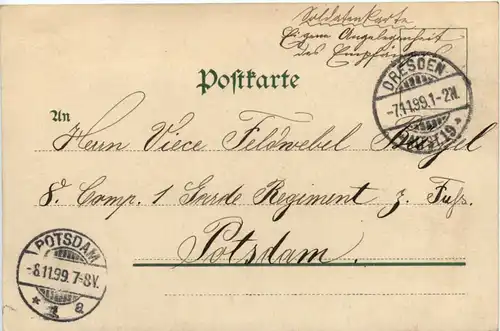 Soldatenkarte
Eigene Angelegenheit
des Empfängers
Postkarte
DRESDEN
-7.11.99.1-2N.
An
Herrn Viece Feldwebel
8. Comp. 1 Garde Regiment z. Fuß.
Potsdam.
POTSDAM
-8.11.99.7-8V.